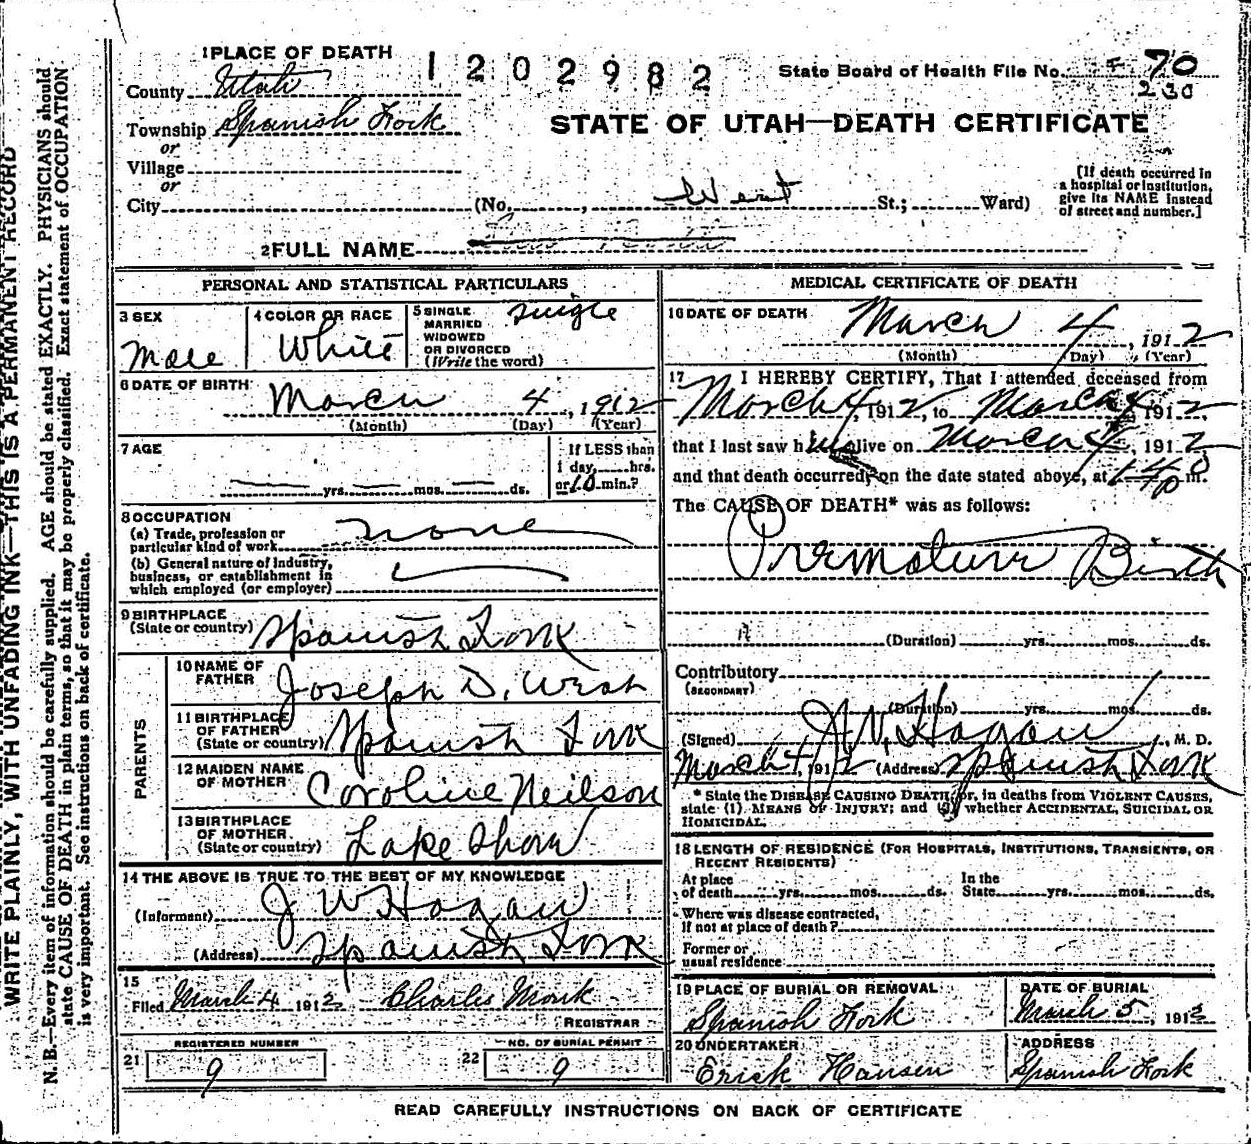 WRITE PLAINLY, WITH UNFADING INK—THIS IS A PERMANENT RECORD
N. B.—Every item of information should be carefully supplied. AGE should be stated EXACTLY. PHYSICIANS should
state CAUSE OF DEATH in plain terms, so that it may be properly classified. Exact statement of OCCUPATION
is very important. See instructions on back of certificate.
1 PLACE OF DEATH
1202982
State Board of Health File No. 70
230
County Utah
Township Spanish Fork
STATE OF UTAH—DEATH CERTIFICATE
or
Village
or
City (No. , St.; Ward)
West
[If death occurred in
a hospital or institution,
give its NAME instead
of street and number.]
2 FULL NAME
PERSONAL AND STATISTICAL PARTICULARS
3 SEX
Male
4 COLOR OR RACE
White
5 SINGLE
MARRIED
WIDOWED
OR DIVORCED
(Write the word)
single
6 DATE OF BIRTH
March 4, 1912
(Month) (Day) (Year)
7 AGE
yrs. mos. ds.
If LESS than
1 day, hrs.
or 10 min.?
8 OCCUPATION
(a) Trade, profession or
particular kind of work
none
(b) General nature of Industry,
business, or establishment in
which employed (or employer)
9 BIRTHPLACE
(State or country) Spanish Fork
PARENTS
10 NAME OF
FATHER
Joseph D. West
11 BIRTHPLACE
OF FATHER
(State or country) Spanish Fork
12 MAIDEN NAME
OF MOTHER
Caroline Neilson
13 BIRTHPLACE
OF MOTHER
(State or country) Lake Shore
14 THE ABOVE IS TRUE TO THE BEST OF MY KNOWLEDGE
(Informant) J W Hagan
(Address) Spanish Fork
15
Filed March 4 1912 Charles Monk
REGISTRAR
REGISTERED NUMBER
21 9
NO. OF BURIAL PERMIT
22 9
MEDICAL CERTIFICATE OF DEATH
16 DATE OF DEATH
March 4, 1912
(Month) (Day) (Year)
17 I HEREBY CERTIFY, That I attended deceased from
March 4, 1912, to March 4, 1912,
that I last saw him alive on March 4, 1912
and that death occurred, on the date stated above, at m.
The CAUSE OF DEATH* was as follows:
Premature Birth
(Duration) yrs. mos. ds.
Contributory
(SECONDARY)
(Duration) yrs. mos. ds.
(Signed) J. W. Hagan, M. D.
March 4, 1912 (Address) Spanish Fork
* State the DISEASE CAUSING DEATH, or, in deaths from VIOLENT CAUSES,
state (1) MEANS OF INJURY; and (2) whether ACCIDENTAL, SUICIDAL OR
HOMICIDAL.
18 LENGTH OF RESIDENCE (FOR HOSPITALS, INSTITUTIONS, TRANSIENTS, OR
RECENT RESIDENTS)
At place
of death yrs. mos. ds.
In the
State yrs. mos. ds.
Where was disease contracted,
If not at place of death?
Former or
usual residence
19 PLACE OF BURIAL OR REMOVAL
Spanish Fork
DATE OF BURIAL
March 5, 1912
20 UNDERTAKER
Erick Hansen
ADDRESS
Spanish Fork
READ CAREFULLY INSTRUCTIONS ON BACK OF CERTIFICATE